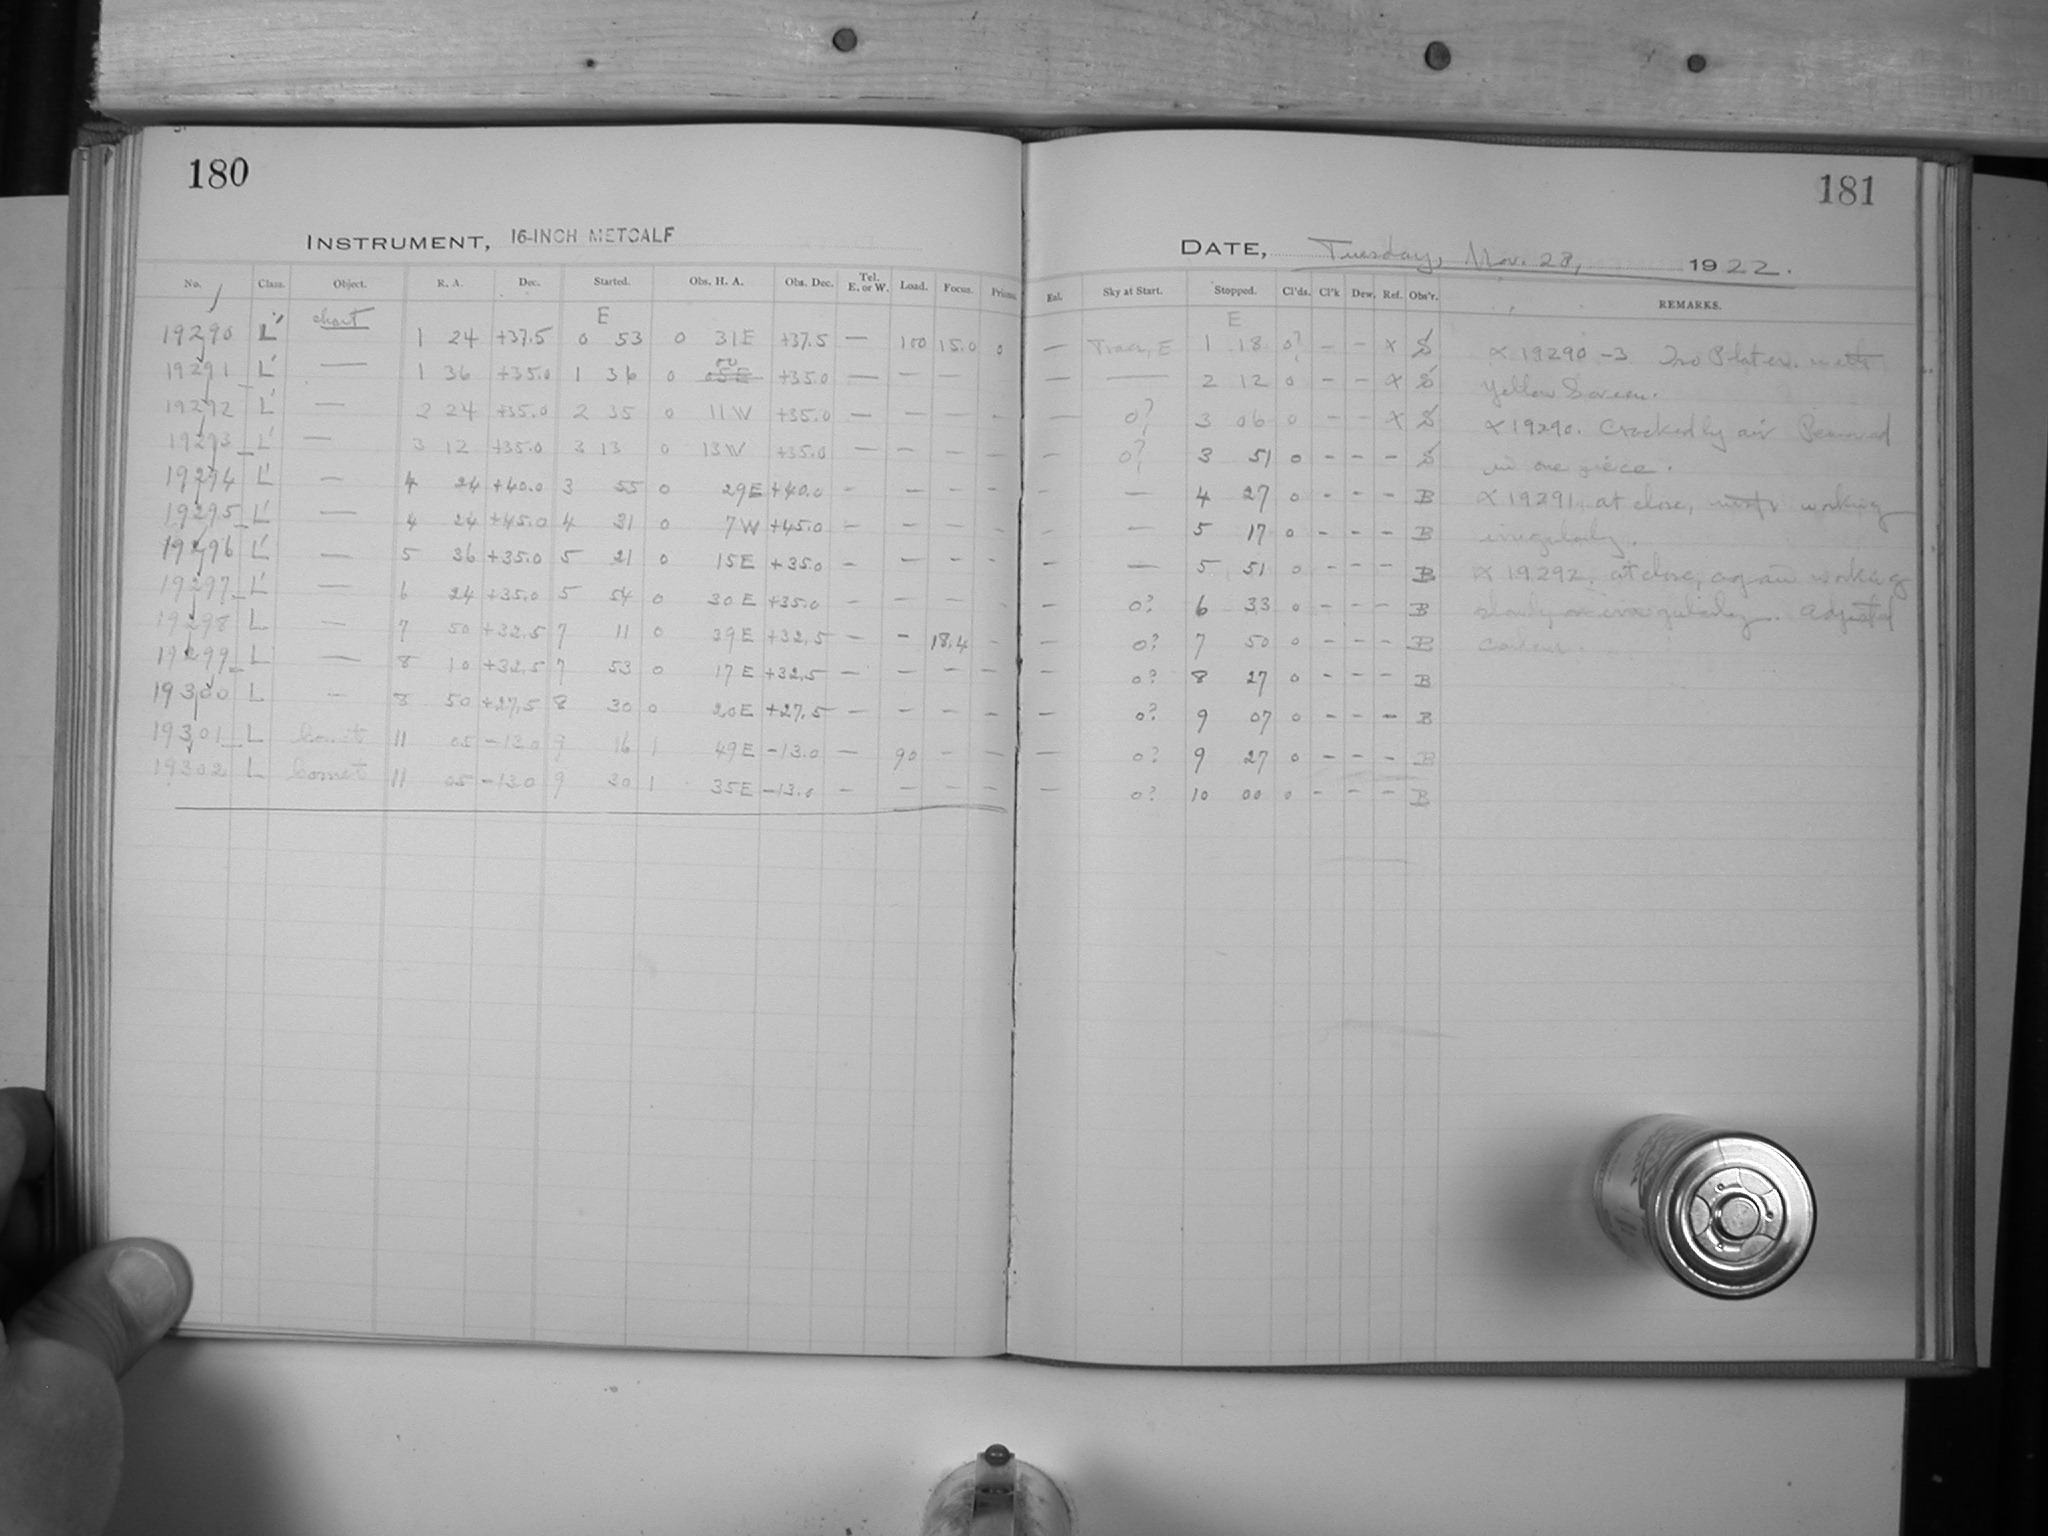 180
INSTRUMENT, 16-INCH METCALF
No. Class. Object. R. A. Dec. Started. Obs. H. A. Obs. Dec. Tel. E. or W. Load. Focus. Prisms.
E
19290 L' chart 1 24 +37.5 0 53 0 31E +37.5 — 100 15.0 0
19291 L' — 1 36 +35.0 1 36 0 +35.0 — — — -
19292 L' — 2 24 +35.0 2 35 0 11W +35.0 — — — -
19293 L' — 3 12 +35.0 3 13 0 13W +35.0 — — — —
19294 L' — 4 24 +40.0 3 55 0 29E +40.0 - — — -
19295 L' — 4 24 +45.0 4 31 0 7W +45.0 — — — -
19296 L' — 5 36 +35.0 5 21 0 15E +35.0 - — — -
19297 L' — 6 24 +35.0 5 54 0 30E +35.0 — — — -
19298 L — 7 50 +32.5 7 11 0 39E +32.5 — — 18.4 -
19299 L — 8 10 +32.5 7 53 0 17E +32.5 — — — —
19300 L — 8 50 +27.5 8 30 0 20E +27.5 — — — —
19301 L Comet 11 05 -13.0 9 16 1 49E -13.0 — 90 - —
19302 L Comet 11 05 -13.0 9 30 1 35E -13.0 — — — —
181
DATE, Tuesday, Nov. 28, 1922.
Sky at Start. Stopped. Cl'ds. Cl'k Dew. Ref. Obs'r. REMARKS.
E
— 1 18 0? - - x S
— — 2 12 0 - - x S
— 0? 3 06 0 - - x S
— 0? 3 51 0 - - - S
- — 4 27 0 - - - B
- — 5 17 0 - - - B
- — 5 51 0 - - - B
— 0? 6 33 0 - - - B
— 0? 7 50 0 - - - B
— 0? 8 27 0 - - - B
— 0? 9 07 0 - - - B
— 0? 9 27 0 - - - B
— 0? 10 00 0 - - - B
α 19290-3 Iso Plates with
Yellow Screen.
α 19290. Cracked by air Removed
in one piece.
α 19291, at close, working
irregularly.
α 19292, at close, again working
slowly or irregularly. Adjusted